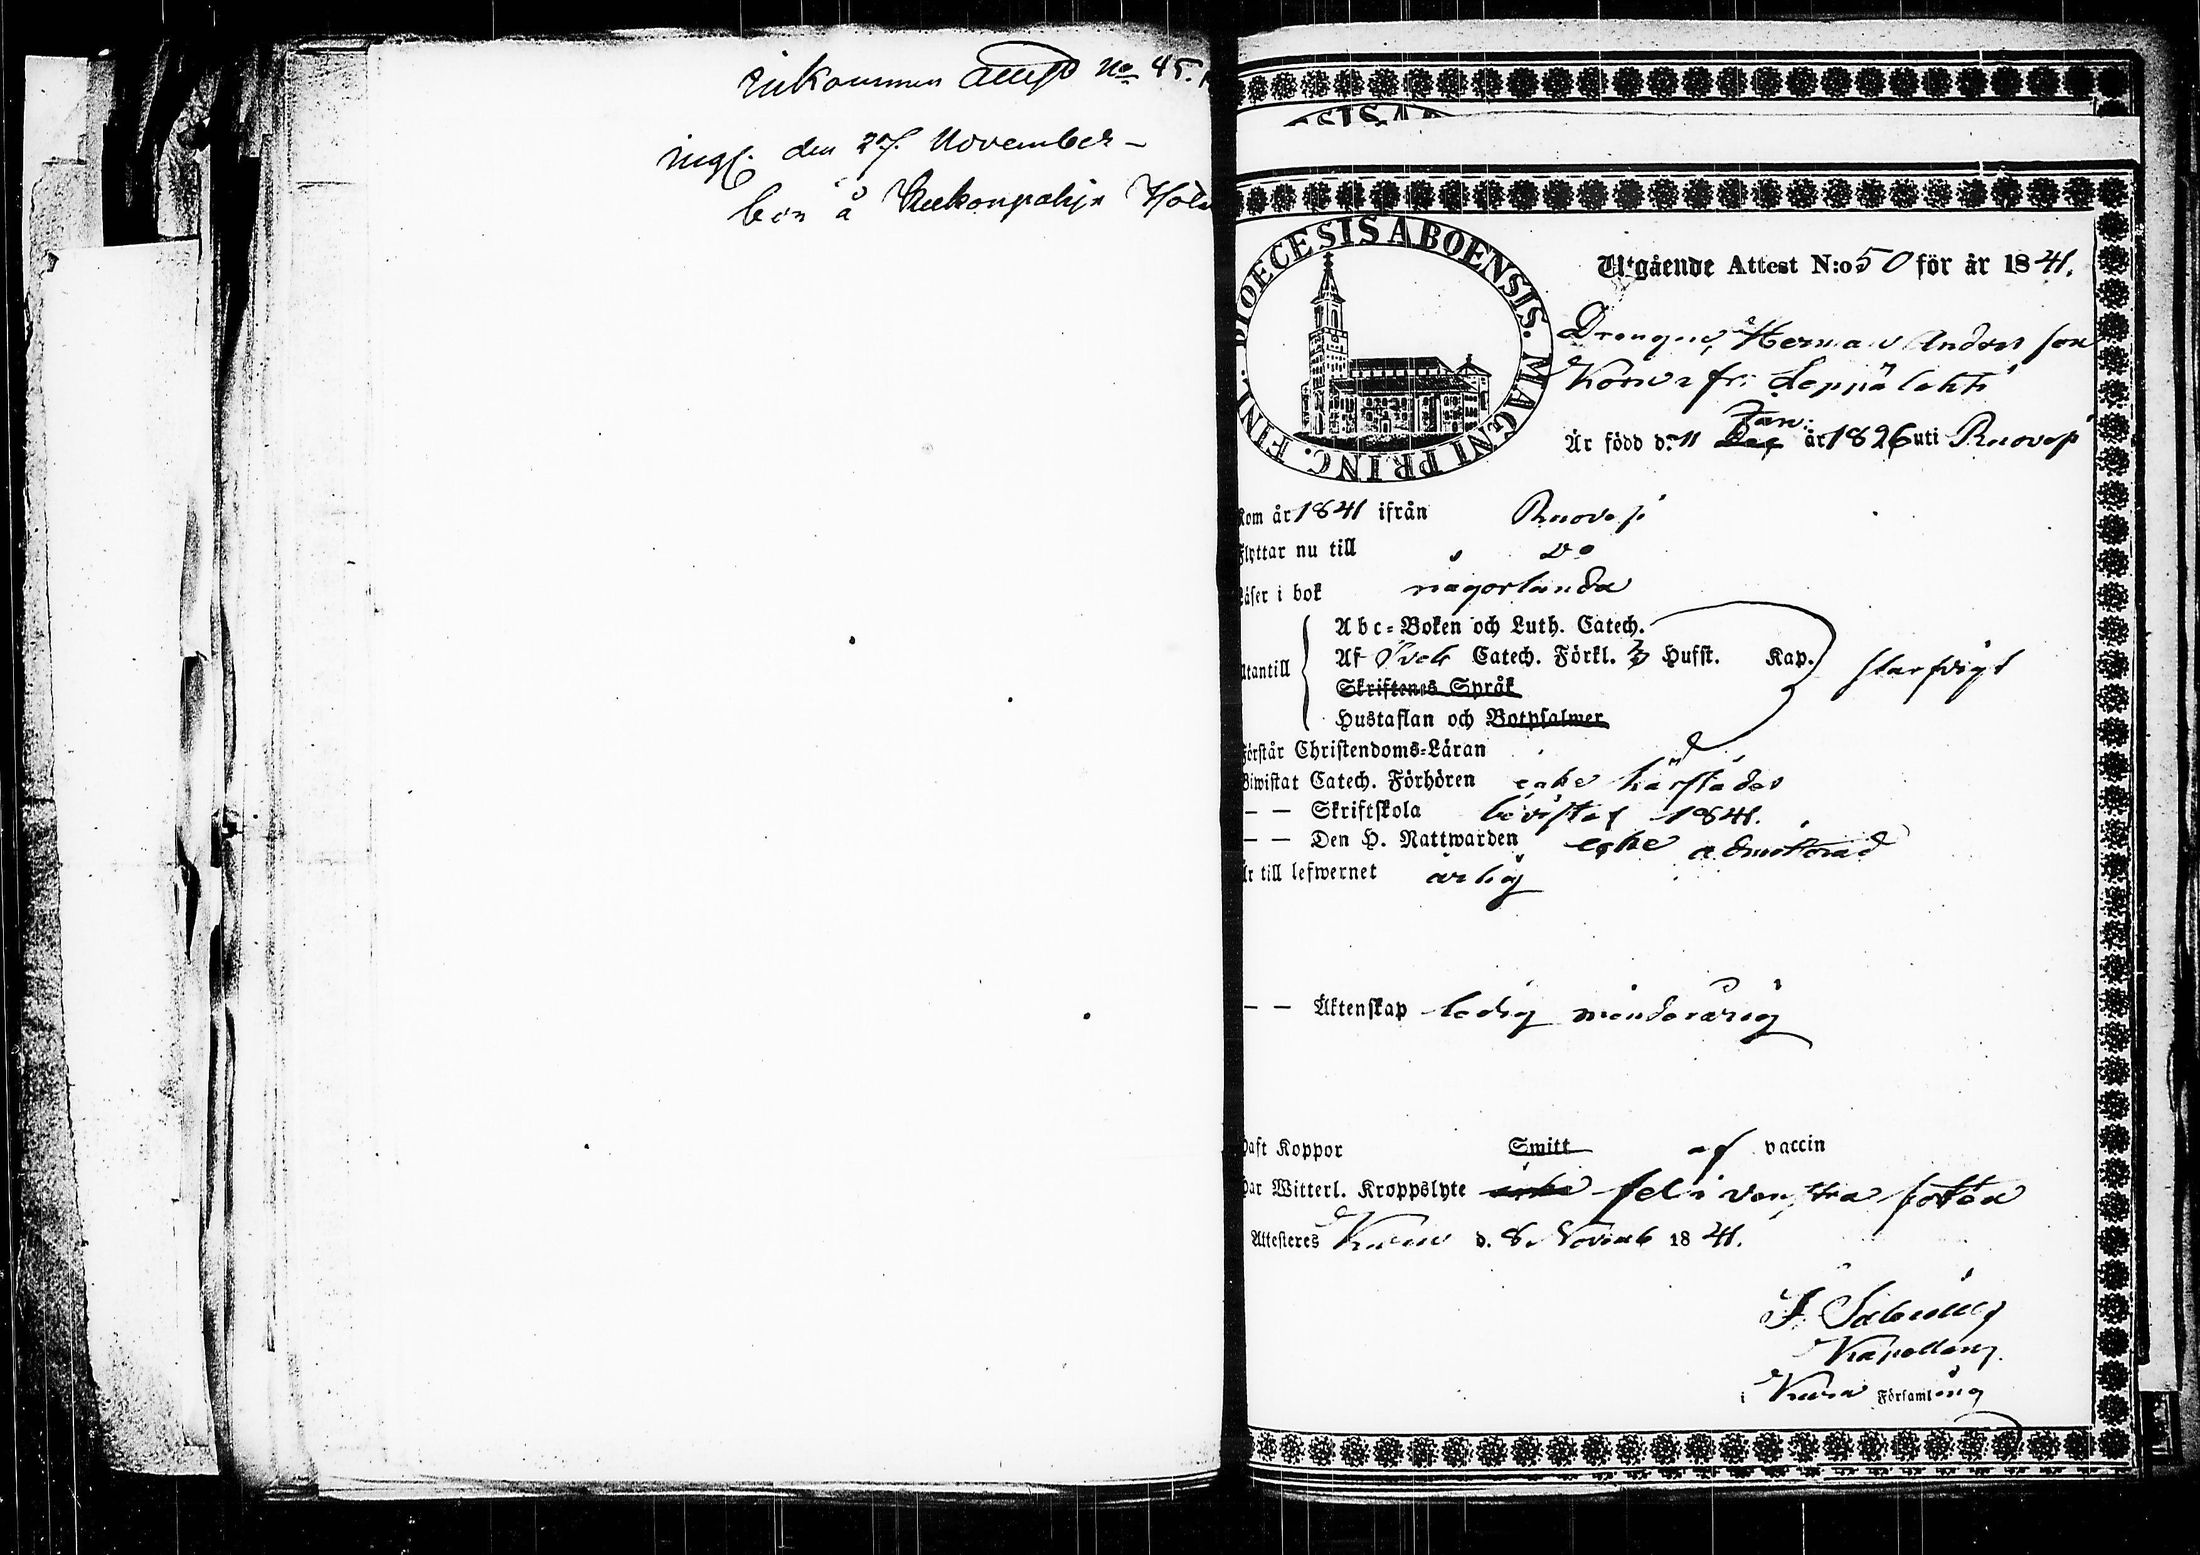 Inkommen Attest No 45.
ingl. den 27. November
bor å
SIS A
DIOECESIS ABOENSIS. MAGNI PRINC. FINL.
Utgående Attest N:o 50 för år 1841.
Drengen Herman Andersson
fr: Leppälahti
Jan:
Är född d. 11 Dec år 1826 uti Ruovesi
Kom år 1841 ifrån Ruovesi
Flyttar nu till Do
Läser i bok någorlunda
Abc-Boken och Luth. Catech.
Utantill Af Sveb Catech. Förkl. 3 Hufst. Kap.
Skriftenes Språk
Hustaflan och Botpsalmer
Förstår Christendoms-Läran
Biwistat Catech. Förhören icke härstädes
— — Skriftskola bivistat 1841.
— — Den H. Nattwarden icke admitterad
Är till lefwernet ärlig
— — Äktenskap ledig minderårig
Haft Koppor Smitt af vaccin
Har Witterl. Kroppslyte icke fel i venstra foten
Attesteres d. 8. Novemb 1841.
Kapellan
i Församling